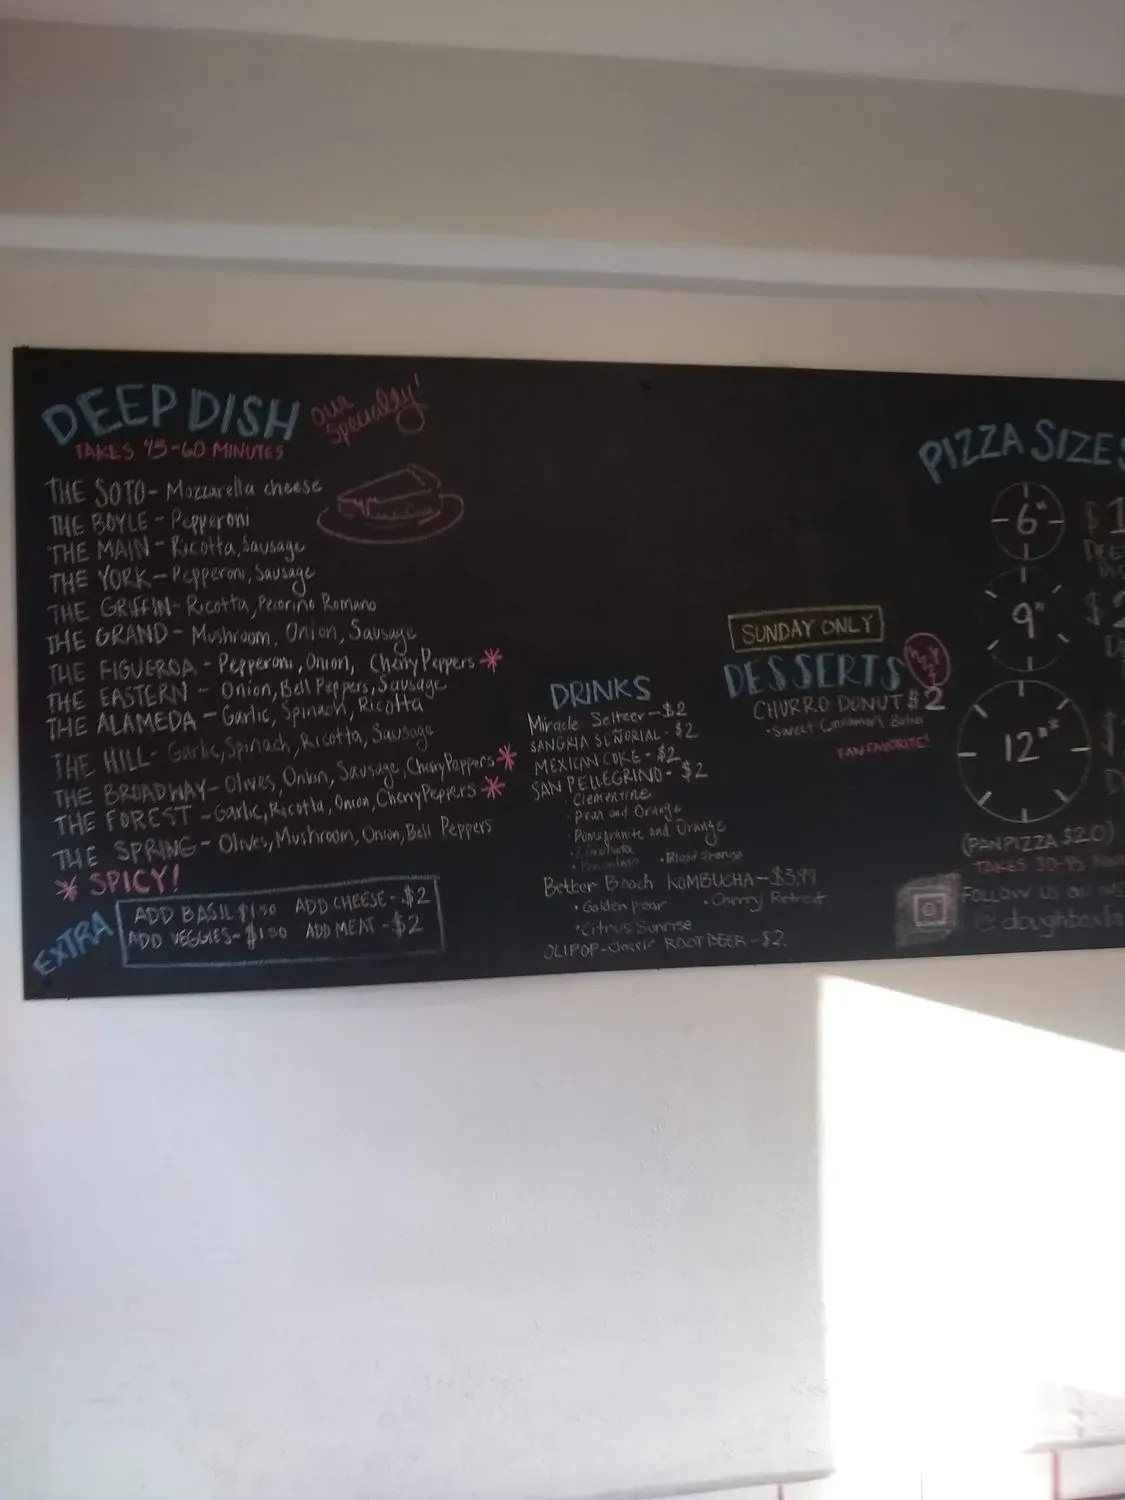 DEEP DISH
our specialty!
TAKES 45-60 MINUTES
THE SOTO - Mozzarella cheese
THE BOYLE - Pepperoni
THE MAIN - Ricotta, Sausage
THE YORK - Pepperoni, Sausage
THE GRIFFIN - Ricotta, Pecorino Romano
THE GRAND - Mushroom, Onion, Sausage
THE FIGUEROA - Pepperoni, Onion, Cherry Peppers *
THE EASTERN - Onion, Bell Peppers, Sausage
THE ALAMEDA - Garlic, Spinach, Ricotta
THE HILL - Garlic, Spinach, Ricotta, Sausage
THE BROADWAY - Olives, Onion, Sausage, Cherry Peppers *
THE FOREST - Garlic, Ricotta, Onion, Cherry Peppers *
THE SPRING - Olives, Mushroom, Onion, Bell Peppers
* SPICY!
EXTRA
ADD BASIL - $1.50 ADD CHEESE - $2
ADD VEGGIES - $1.50 ADD MEAT - $2
DRINKS
Miracle Seltzer - $2
SANGRIA SEÑORIAL - $2
MEXICAN COKE - $2
SAN PELLEGRINO - $2
Clementine
and Orange
and Orange
• Blood Orange
KOMBUCHA - $3.99
• Golden pear • Cherry Retreat
• Citrus Sunrise
OLIPOP - Classic ROOT BEER - $2
SUNDAY ONLY
DESSERTS
CHURRO DONUT $2
• Sweet Cinnamon
FAN FAVORITE!
PIZZA SIZES
6"
9"
12"*
(PAN PIZZA $20)
TAKES
FOLLOW US ON